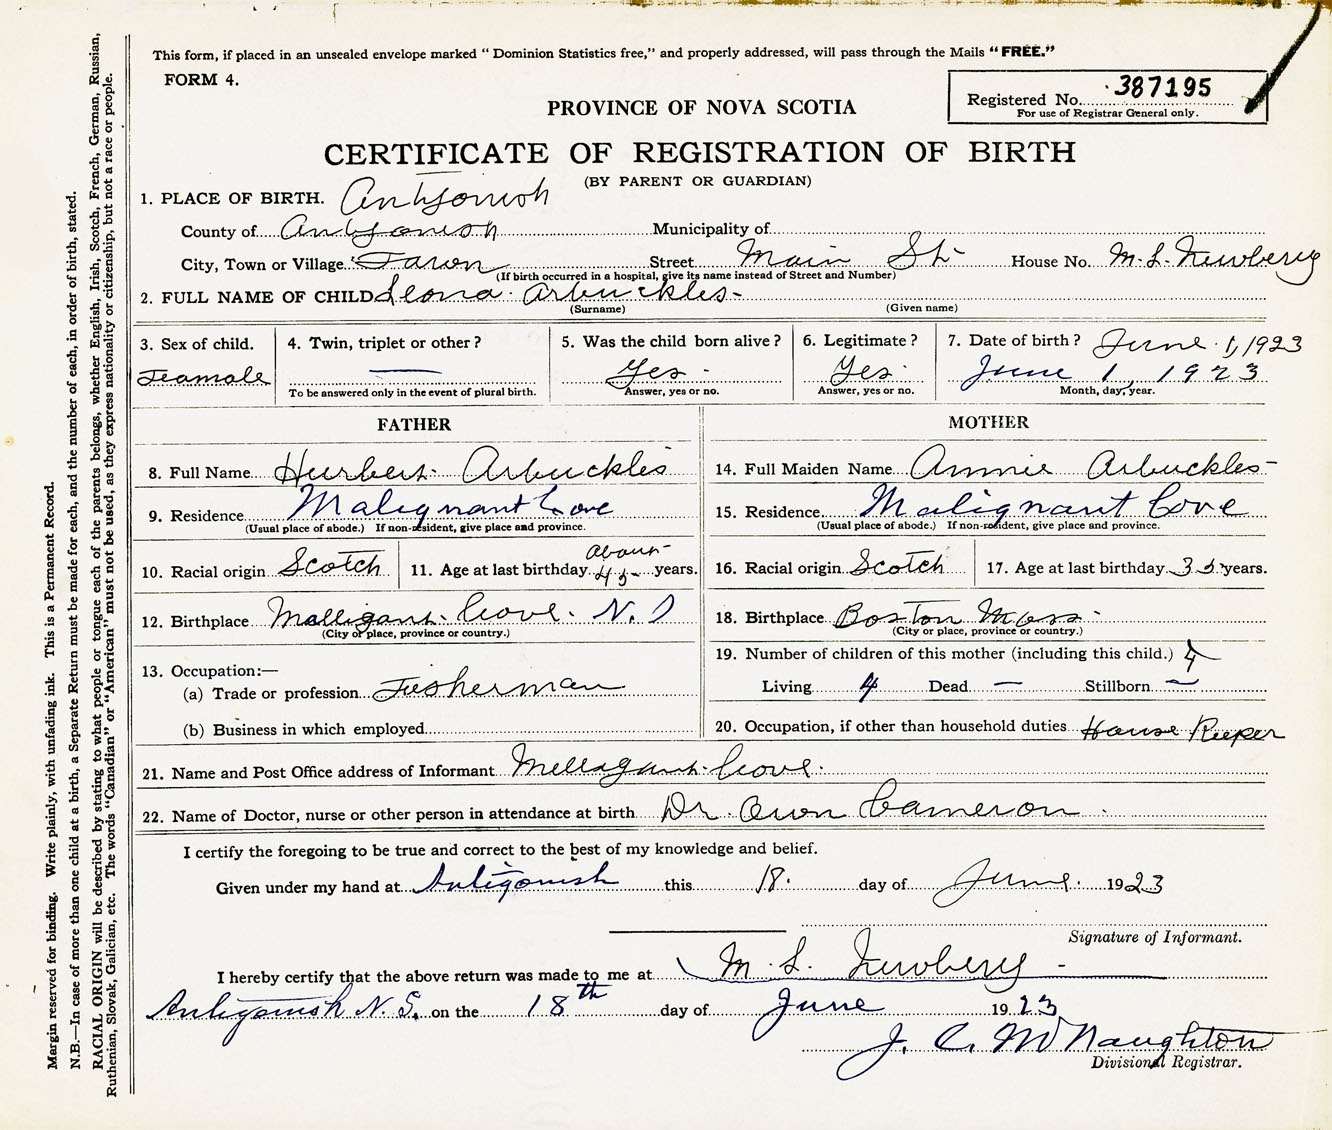 This form, if placed in an unsealed envelope marked "Dominion Statistics free," and properly addressed, will pass through the Mails "FREE."
FORM 4.
Registered No. 387195
For use of Registrar General only.
PROVINCE OF NOVA SCOTIA
CERTIFICATE OF REGISTRATION OF BIRTH
(BY PARENT OR GUARDIAN)
1. PLACE OF BIRTH. Antigonish
County of Antigonish Municipality of
City, Town or Village Street Main St House No. M. L. Newbery
(If birth occurred in a hospital, give its name instead of Street and Number)
2. FULL NAME OF CHILD Leona Arbuckles
(Surname) (Given name)
3. Sex of child. 4. Twin, triplet or other? 5. Was the child born alive? 6. Legitimate? 7. Date of birth? June 1, 1923
Feamale — Yes Yes June 1, 1923
To be answered only in the event of plural birth. Answer, yes or no. Answer, yes or no. Month, day, year.
FATHER MOTHER
8. Full Name Hurbert Arbuckles 14. Full Maiden Name Annie Arbuckles
9. Residence Malignant Cove 15. Residence Malignant Cove
(Usual place of abode.) If non-resident, give place and province. (Usual place of abode.) If non-resident, give place and province.
10. Racial origin Scotch 11. Age at last birthday about 45 years. 16. Racial origin Scotch 17. Age at last birthday 35 years.
12. Birthplace Malligant Cove. N. S 18. Birthplace Boston Mass
(City or place, province or country.) (City or place, province or country.)
19. Number of children of this mother (including this child.) 4
13. Occupation:—
(a) Trade or profession Fisherman Living 4 Dead — Stillborn —
(b) Business in which employed 20. Occupation, if other than household duties House Keeper
21. Name and Post Office address of Informant Mellagant Cove.
22. Name of Doctor, nurse or other person in attendance at birth Dr. Owen Cameron
I certify the foregoing to be true and correct to the best of my knowledge and belief.
Given under my hand at Antigonish this 18. day of June 1923
Signature of Informant.
I hereby certify that the above return was made to me at M. L. Newbery
Antigonish N. S. on the 18th day of June 1923
J. C. McNaughton
Divisional Registrar.
Margin reserved for binding. Write plainly, with unfading ink. This is a Permanent Record.
N.B.—In case of more than one child at a birth, a Separate Return must be made for each, and the number of each, in order of birth, stated.
RACIAL ORIGIN will be described by stating to what people or tongue each of the parents belongs, whether English, Irish, Scotch, French, German, Russian,
Ruthenian, Slovak, Galician, etc. The words "Canadian" or "American" must not be used, as they express nationality or citizenship, but not a race or people.